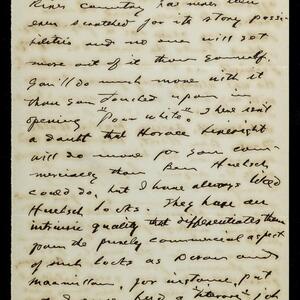 River country has never been
even scratched for its story possi-
bilities and no one will get
more out of it than yourself.
You'll do much more with it
than you touched upon in
opening "Poor White". There isn't
a doubt that Horace Liveright
will do more for you com-
mercially than Ben Huebsch
could do, but I have always liked
Huebsch books. They have an
intrinsic quality that differentiates them
from the purely commercial aspect
of such books as Doran and
Macmillan, for instance, put
had a